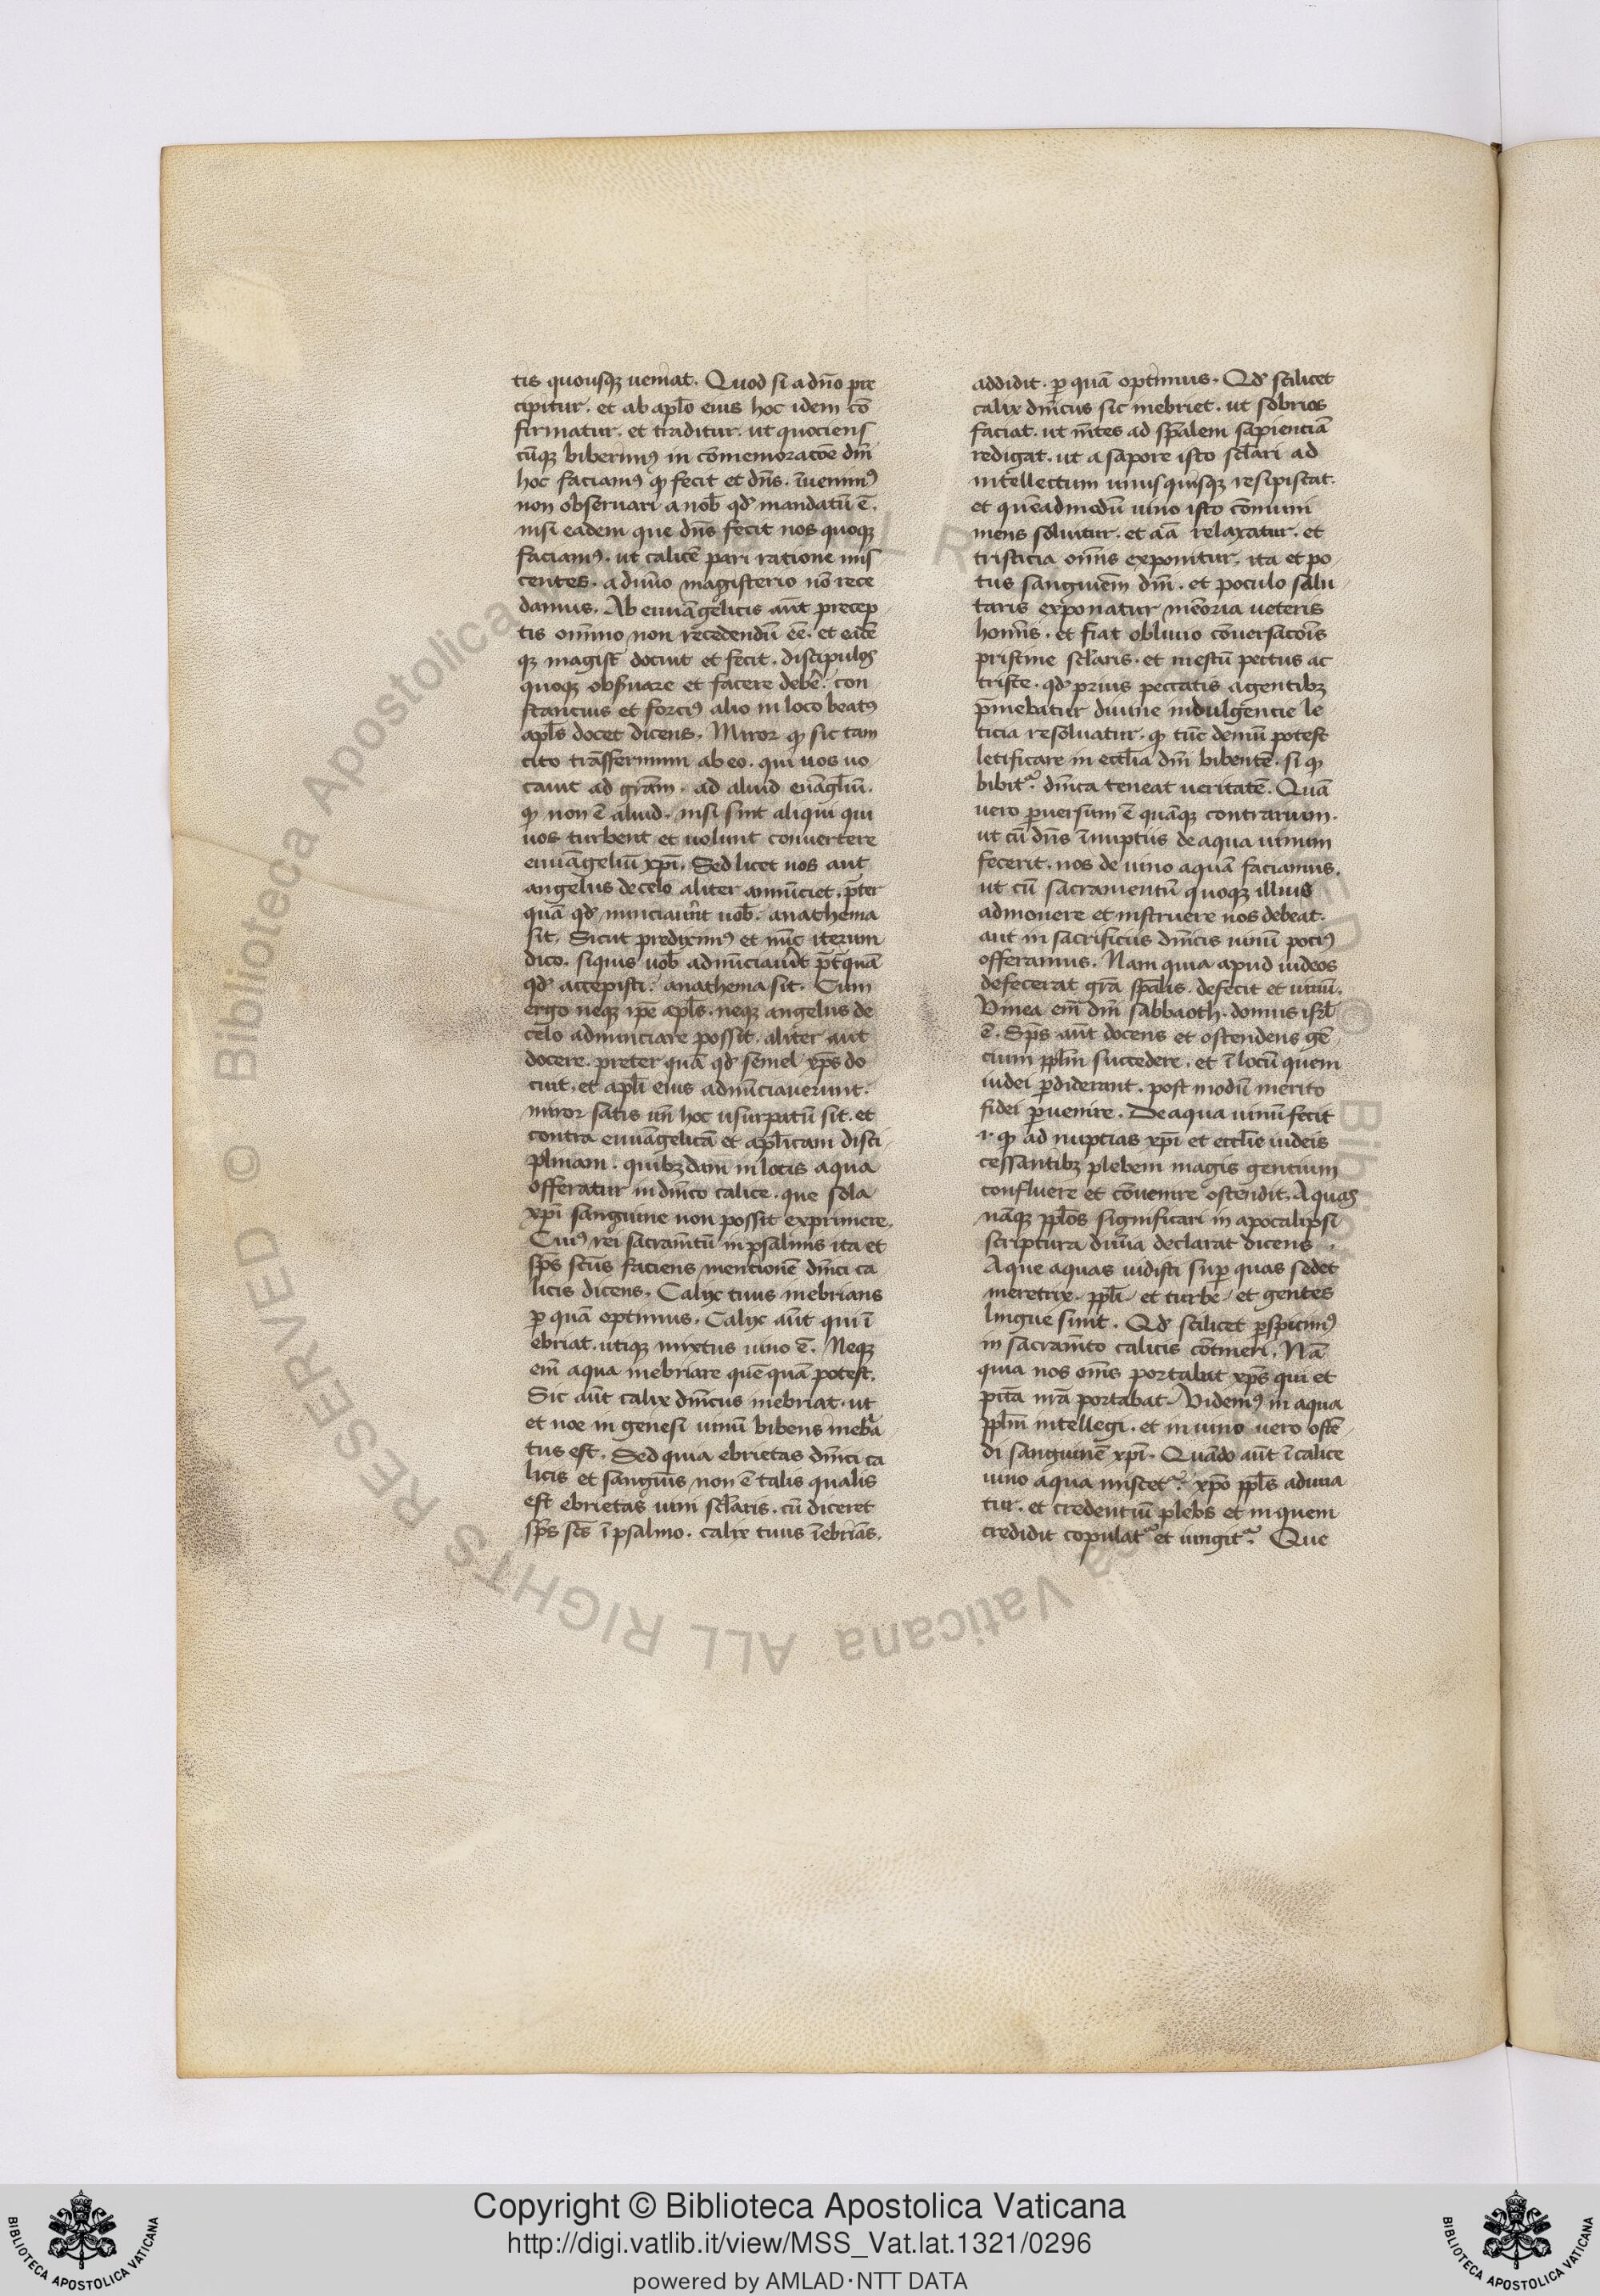 tis quousqꝫ ueniat. Quod si a dn̄o pre
cipitur. et ab apl̄o eius hoc idem cō
firmatur. et traditur. ut quociens
cūqꝫ biberimꝰ in cōmemoracōe dn̄i
hoc faciamꝰ qͦ fecit et dn̄s. īuenimꝰ
non obseruari a nob̄ qd̓ mandatū ē.
nisi eadem que dn̄s fecit nos quoqꝫ
faciamꝰ. ut calicē pari ratione mis
centes. a diuīo magisterio nō rece
damus. Ab euuāgelicis aūt precep
tis omīno non recedendū eē. et eadē
qꝫ magist̄ docuit et fecit. discipulos
quoqꝫ obs̓uare et facere debē. con
stancius et forciꝰ alio in loco beatꝰ
apl̄s docet dicens. Miror qͦ sic tam
cito trāsferimini ab eo. qui uos uo
cauit ad grām. ad aliud euāgl̄iū.
qͦ non ē aliud. nisi sint aliqui qui
uos turbent et uolunt conuertere
euuāgeliū xp̄i. Sed licet nos aut
angelus de celo aliter annūciet. p̄ter
quā qd̓ nunciauīt uob̄. anathema
sit. Sicut prediximꝰ et nūc iterum
dico. siquis uob̄ adnūciauīt p̄tquā
qd̓ accepisti. anathema sit. Cum
ergo neqꝫ ip̄e apl̄s. neqꝫ angelus de
celo adnunciare possit. aliter aut
docere. preter quā qd̓ semel xp̄s do
cuit. et apl̄i eius adnūciauerunt.
miror satis un̄ hoc usurpatū sit. et
contra euuāgelicā et apl̄icam disci
plinam. quibꝫdam in locis aqua
offeratur in dn̄ico calice. que sola
xp̄i sanguine non possit exprimere.
Cuiꝰ rei sacramītū in psalmis ita et
sp̄s sc̄us faciens mentionē dn̄ici ca
licis dicens. Calix tuus inebrians
ꝑ quā optimus. Calix aūt qui ī
ebriat. utiqꝫ mixtus uino ē. Neqꝫ
em̄ aqua inebriare quēquā potest.
Sic aūt calix dn̄icus inebriat. ut
et noe in genesi uinū bibens inebriā
tus est. Sed quia ebrietas dn̄ici ca
licis et sanguis non ē talis qualis
est ebrietas uini sc̄laris. cū diceret
sp̄s sc̄s ī psalmo. calix tuus īebriās.
addidit. ꝑ quā optimus. Qd̓ scilicet
calix dn̄icus sic inebriet. ut sobrios
faciat. ut mētes ad sp̄alem sapienciā
redigat. ut a sapore isto sc̄lari ad
intellectum unusquisqꝫ resipiscat.
et quēadmodū uino isto cōmuni
mens soluitur. et aīa relaxatur. et
tristicia omīs exponitur. ita et po
tus sanguinem dn̄i. et poculo salu
taris exponatur memoria ueteris
homīs. et fiat obliuio cōuersacōīs
pristine sc̄laris. et mestū pectus ac
triste. qd̓ prius peccatis agentibꝫ
p̄mebatur diuine indulgencie le
ticia resoluatur. qͦ tūc demū potest
letificare in eccl̄ia dn̄i bibentē. si qͦ
bibitᷣ. dn̄ica teneat ueritatē. Quā
uero ꝑuersum ē quāqꝫ contrarium.
ut cū dn̄s ī nuptiis de aqua uinum
fecerit. nos de uino aquā faciamus.
ut cū sacramentū quoqꝫ illius
admonere et instruere nos debeat.
aut in sacrificiis dn̄icis uinū pociꝰ
offeramus. Nam quia apud iudeos
defecerat grā sp̄alis. defecit et uinū.
Vinea em̄ dn̄i sabbaoth. domus isrl̄
ē. Sp̄s aūt docens et ostendens gē
cium ppl̄m succedere. et ī locū quem
iudei ꝑdiderant. post modū merito
fidei ꝑuenire. De aqua uinū fecit
.i. qͦ ad nuptias xp̄i et eccl̄ie iudeis
cessantibꝫ plebem magis gentium
confluere et cōuenire ostendit. Aquas
nāqꝫ ppl̄os significari in apocalipsi
scriptura diuīa declarat dicens.
Aque aquas uidisti sup̄ quas sedet
meretrix. ppl̄i et turbe et gentes
lingue sunt. Qd̓ scilicet ꝑspicimꝰ
in sacramīto calicis cōtineri. Nā
quia nos omīs portabat xp̄s qui et
pct̄a nr̄a portabat. Videmꝰ in aqua
ppl̄m intellegi. et in uino uero ostē
di sanguinē xp̄i. Quādo aūt ī calice
uino aqua miscetᷣ. xp̄o ppl̄s aduna
tur. et credentiū plebs et in quem
credidit copulatᷣ et iungitᷣ. Que
© Biblioteca Apostolica Vaticana ALL RIGHTS RESERVED
Copyright © Biblioteca Apostolica Vaticana
http://digi.vatlib.it/view/MSS_Vat.lat.1321/0296
powered by AMLAD·NTT DATA
BIBLIOTECA APOSTOLICA VATICANA
BIBLIOTECA APOSTOLICA VATICANA